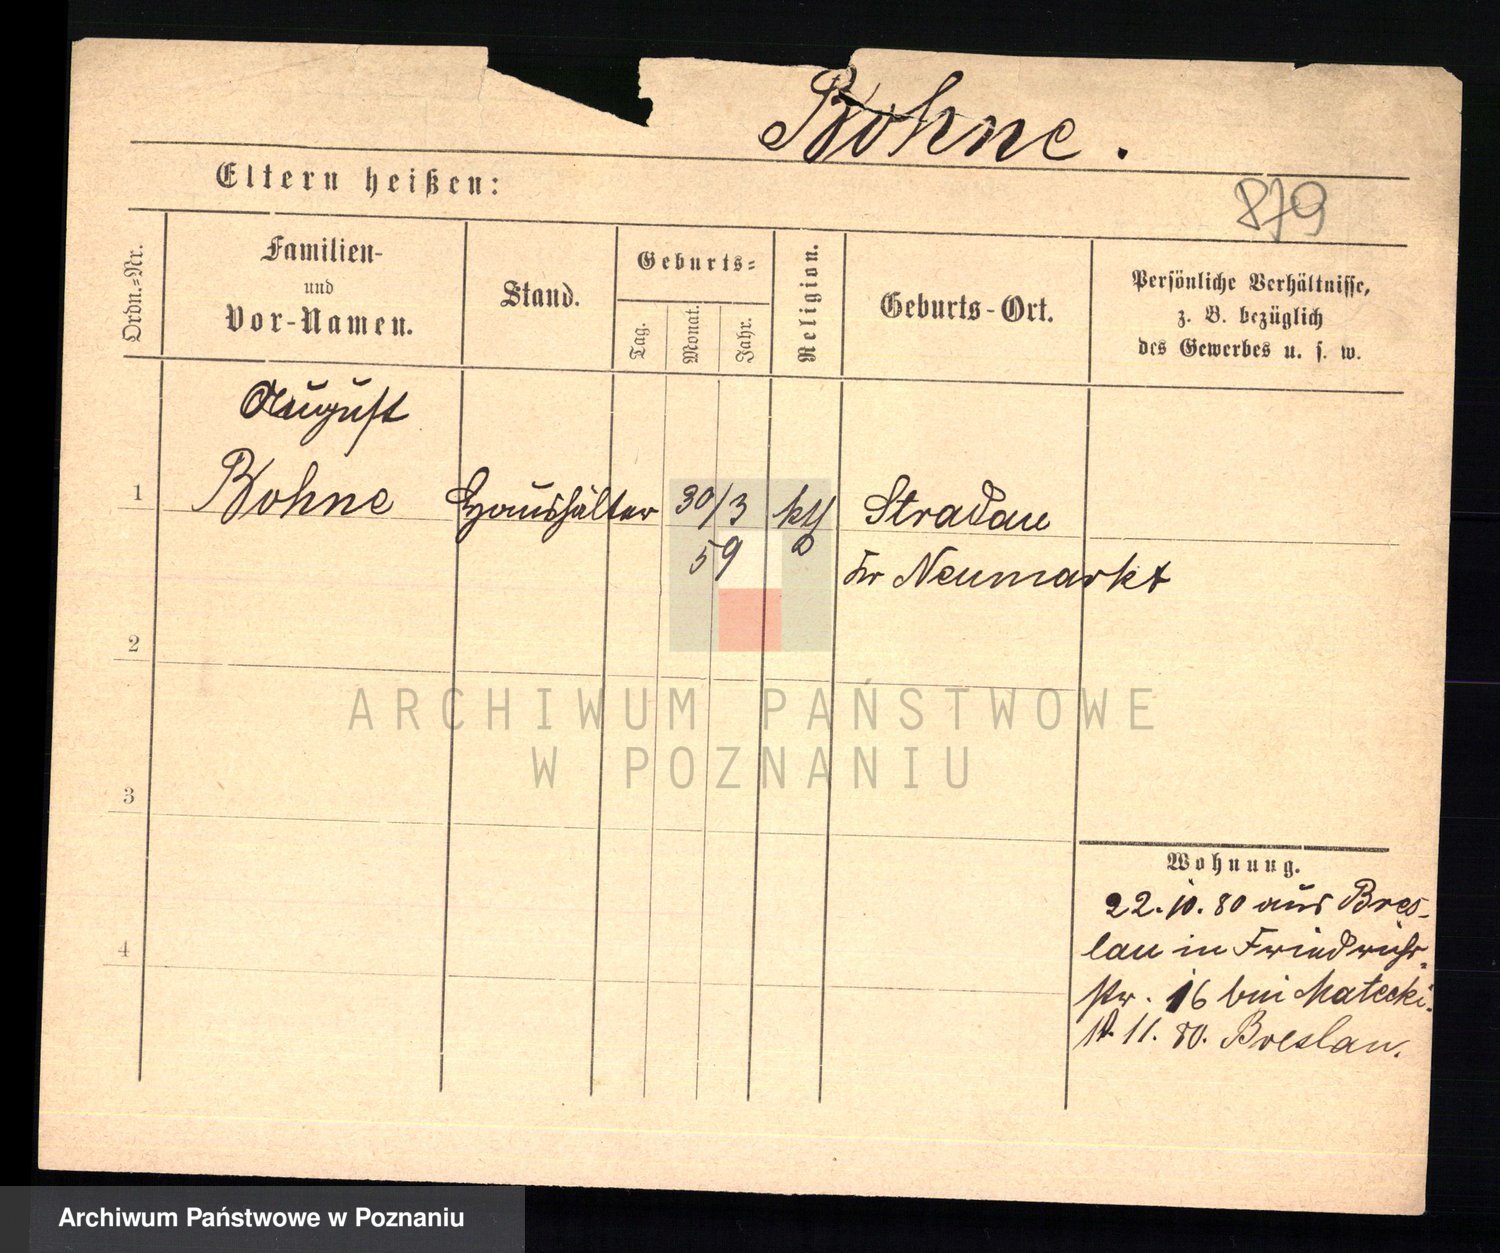 Bohne.
Eltern heißen:
879
Ordn.-Nr.
Familien-
und
Vor-Namen.
Stand.
Geburts-
Tag.
Monat.
Jahr.
Religion.
Geburts-Ort.
Persönliche Verhältnisse,
z. B. bezüglich
des Gewerbes u. s. w.
August
1
Bohne
Haushälter
30/3
59
kth
Stradau
Kr Neumarkt
2
ARCHIWUM PAŃSTWOWE
W POZNANIU
3
Wohnung.
22.10.80 aus Bres-
lau in Friedrichs-
str. 16 bei Matecki.
11. 80. Breslau.
4
Archiwum Państwowe w Poznaniu